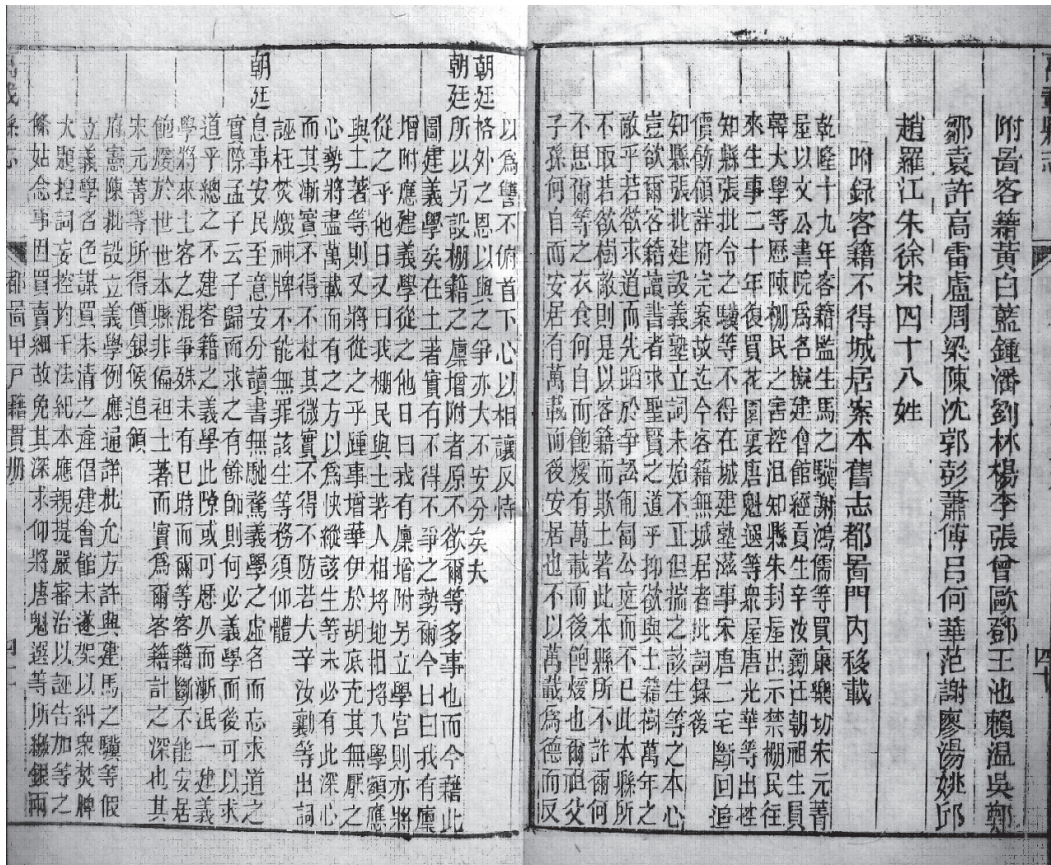 萬載縣志
四十
附啚客籍黃白藍鍾潘劉林楊李張曾歐鄧王池賴溫吳鄭
鄒袁許高雷盧周梁陳沈郭彭蕭傅呂何華范謝廖湯姚邱
趙羅江朱徐宋四十八姓
附録客籍不得城居案本舊志都啚門內移載
乾隆十九年客籍監生馬之驥謝鴻儒等買康樂坊宋元菁
屋以文公書院爲名擬建會館經貢生辛汝勷汪朝祖生員
韓大學等歷陳棚民之害控沮知縣朱封屋出示禁棚民往
來生事二十年復買花園裏唐魁選等衆屋唐光華等出控
知縣張批令之驥等不得在城建塾滋事宋唐二宅斷回追
價飭領詳府完案故迄今客籍無城居者批詞錄後
知縣張批建設義塾立詞未始不正但揣之該生等之本心
豈欲爾客籍讀書者求聖賢之道乎抑欲與土籍樹萬年之
敵乎若欲求道而先蹈於爭訟匍匐公庭而不已此本縣所
不取若欲樹敵則是以客籍而欺土著此本縣所不許爾何
不思爾等之衣食何自而飽煖有萬載而後飽煖也爾祖父
子孫何自而安居有萬載而後安居也不以萬載爲德而反
以爲讐不俯首下心以相讓反恃
朝廷格外之恩以與之爭亦大不安分矣夫
朝廷所以另設棚籍之廩增附者原不欲爾等多事也而今藉此
圖建義學矣在土著實有不得不爭之勢爾今日曰我有廩
增附應建義學從之他日曰我有廩增附另立學宮則亦將
從之乎他日又曰我棚民與土著人相埒地相埒入學額應
與土著等則又將從之乎踵事增華伊於胡底充其無厭之
心勢將盡萬載而有之方以爲快縱該生等未必有此深心
而其漸實不得不杜其微實不得不防若大辛汝勷等出詞
誣枉焚燬神牌不能無罪該生等務須仰體
朝廷息事安民至意安分讀書無馳騖義學之虛名而忘求道之
實際孟子云子歸而求之有餘師則何必義學而後可以求
道乎總之不建客籍之義學此隙或可歷久而漸泯一建義
學將來土客之混爭殊未有已時而爾等客籍斷不能安居
飽煖於世世本縣非偏袒土著而實爲爾客籍計之深也其
宋元菁等所得價銀自候追領
府憲陳批設立義學例應通詳批允方許興建馬之驥等假
立義學名色謀買未清之產倡建會館未遂架以糾衆焚牌
大題控詞妄控均干法紀本應親提嚴審治以誣告加等之
條姑念事因買賣細故免其深求仰將唐魁選等所繳銀兩
萬載縣志
都啚甲戸籍貫册
四十一